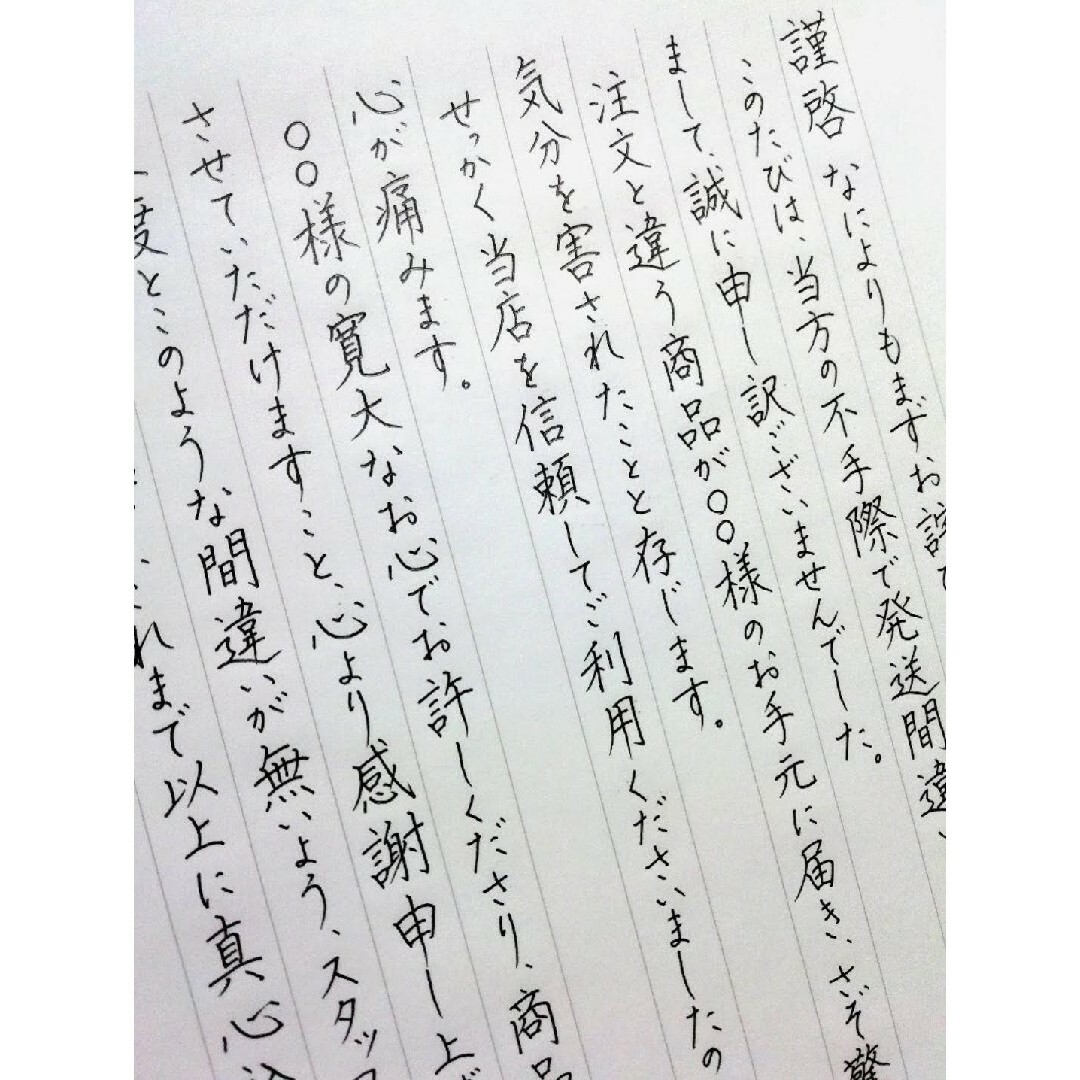 謹啓 なによりもまずお詫び
このたびは、当方の不手際で発送間違い
まして、誠に申し訳ございませんでした。
注文と違う商品が○○様のお手元に届き、さぞ驚
気分を害されたことと存じます。
せっかく当店を信頼してご利用くださいましたの
心が痛みます。
○○様の寛大なお心でお許しくださり、商品
させていただけますこと、心より感謝申し上げ
度とこのような間違いが無いよう、スタッフ
れまで以上に真心込